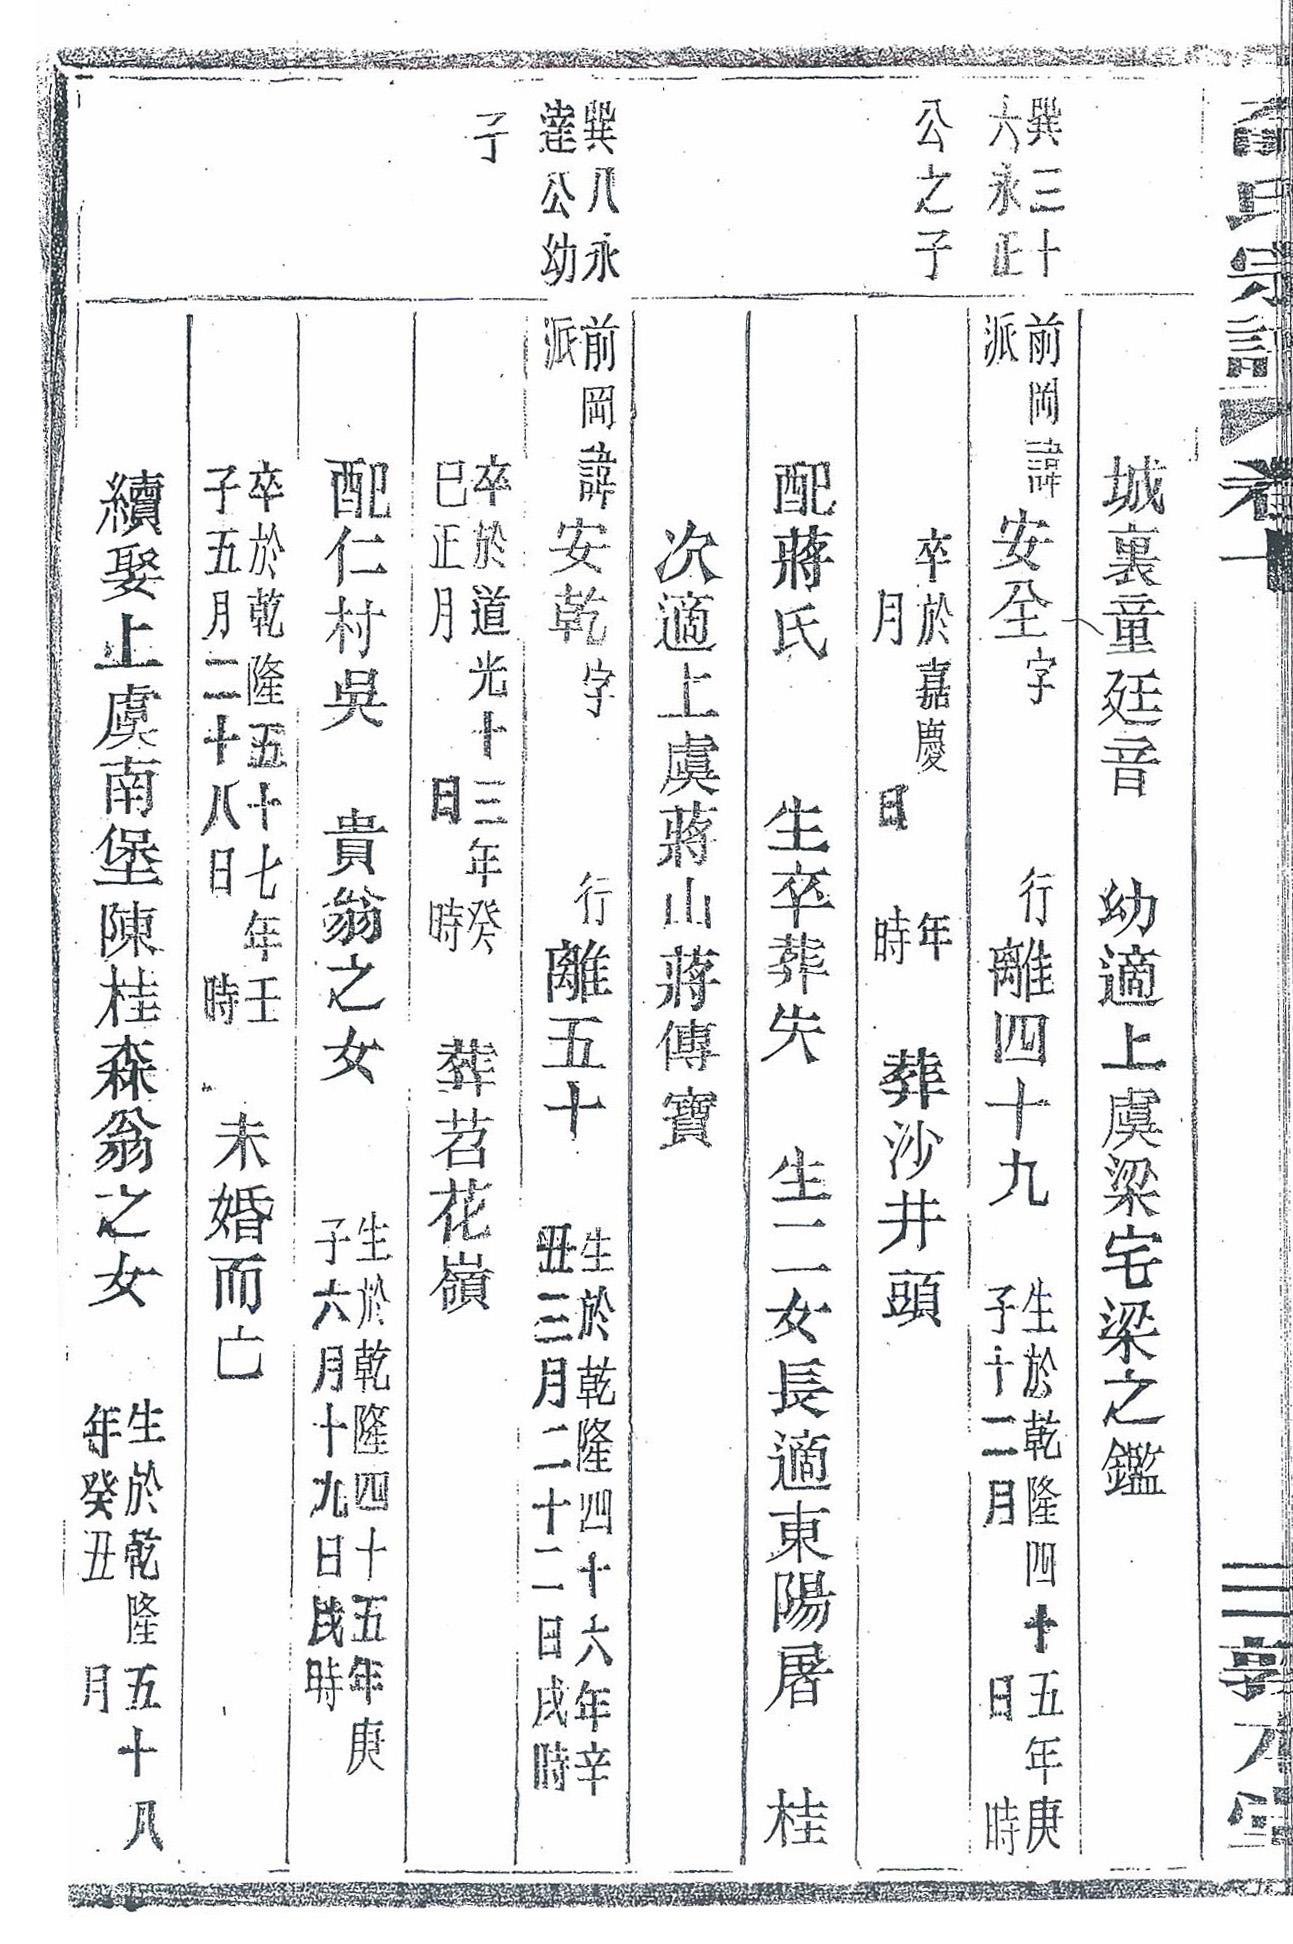 氏宗譜 卷十
城裏童廷音 幼適上虞梁宅梁之鑑
巽三十六永正
前岡派諱安全字 行離四十九 生於乾隆四十五年庚子十二月 日 時
公之子
卒於嘉慶 年 月 日 時 葬沙井頭
配蔣氏 生卒葬失 生二女長適東陽厝 桂
次適上虞蔣山蔣傳寶
巽八永達公幼
前岡派諱安乾字 行離五十 生於乾隆四十六年辛丑三月二十二日戌時
子
卒於道光十三年癸巳正月 日 時 葬苕花嶺
配仁村吳 貴翁之女 生於乾隆四十五年庚子六月十九日戌時
卒於乾隆五十七年壬子五月二十八日 時 未婚而亡
續娶上虞南堡陳桂森翁之女 生於乾隆五十八年癸丑 月